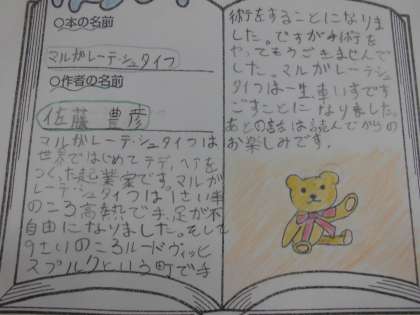 ○本の名前
マルガレーテ・シュタイフ
○作者の名前
佐藤豊彦
マルガレーテ・シュタイフは
世界ではじめてテディベアを
つくった起業家です。マルガ
レーテ・シュタイフは1さい半
のころ高熱で手、足が不
自由になりました。そして
9さいのころルードヴィッヒ
スブルクという町で手
術をすることになりま
した。ですが手術を
やってもうごきませんで
した。マルガレーテ・シュ
タイフは一生車いすです
ごすことになりました。
あとの話は読んでからの
お楽しみです。